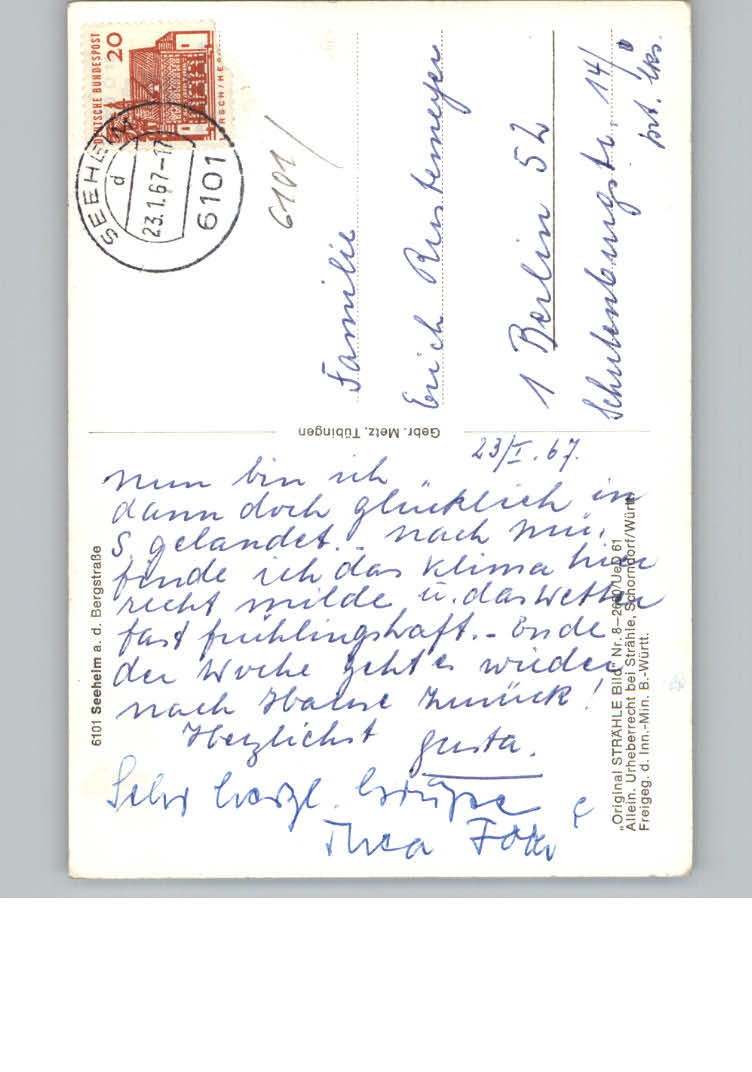 DEUTSCHE BUNDESPOST
20
SEEHEIM
d
23.1.67-17
6101
6101/
Familie
Erich Rustemeyer
1 Berlin 52
14/
prt. lks.
Gebr. Metz, Tübingen
23/I.67.
Nun bin ich
dann doch glücklich in
S. gelandet. nach
finde ich das Klima hier
recht milde u. das Wetter
fast frühlingshaft.- Ende
der Woche geht es wieder
nach Hause zurück!
Herzlichst Gusta.
Sehr herzl. Grüsse
Thea
6101 Seeheim a. d. Bergstraße
„Original STRÄHLE Bild Nr. 8-
Allein. Urheberrecht bei Strähle, Schorndorf/Württ.
Freigeg. d. Inn.-Min. B.-Württ.